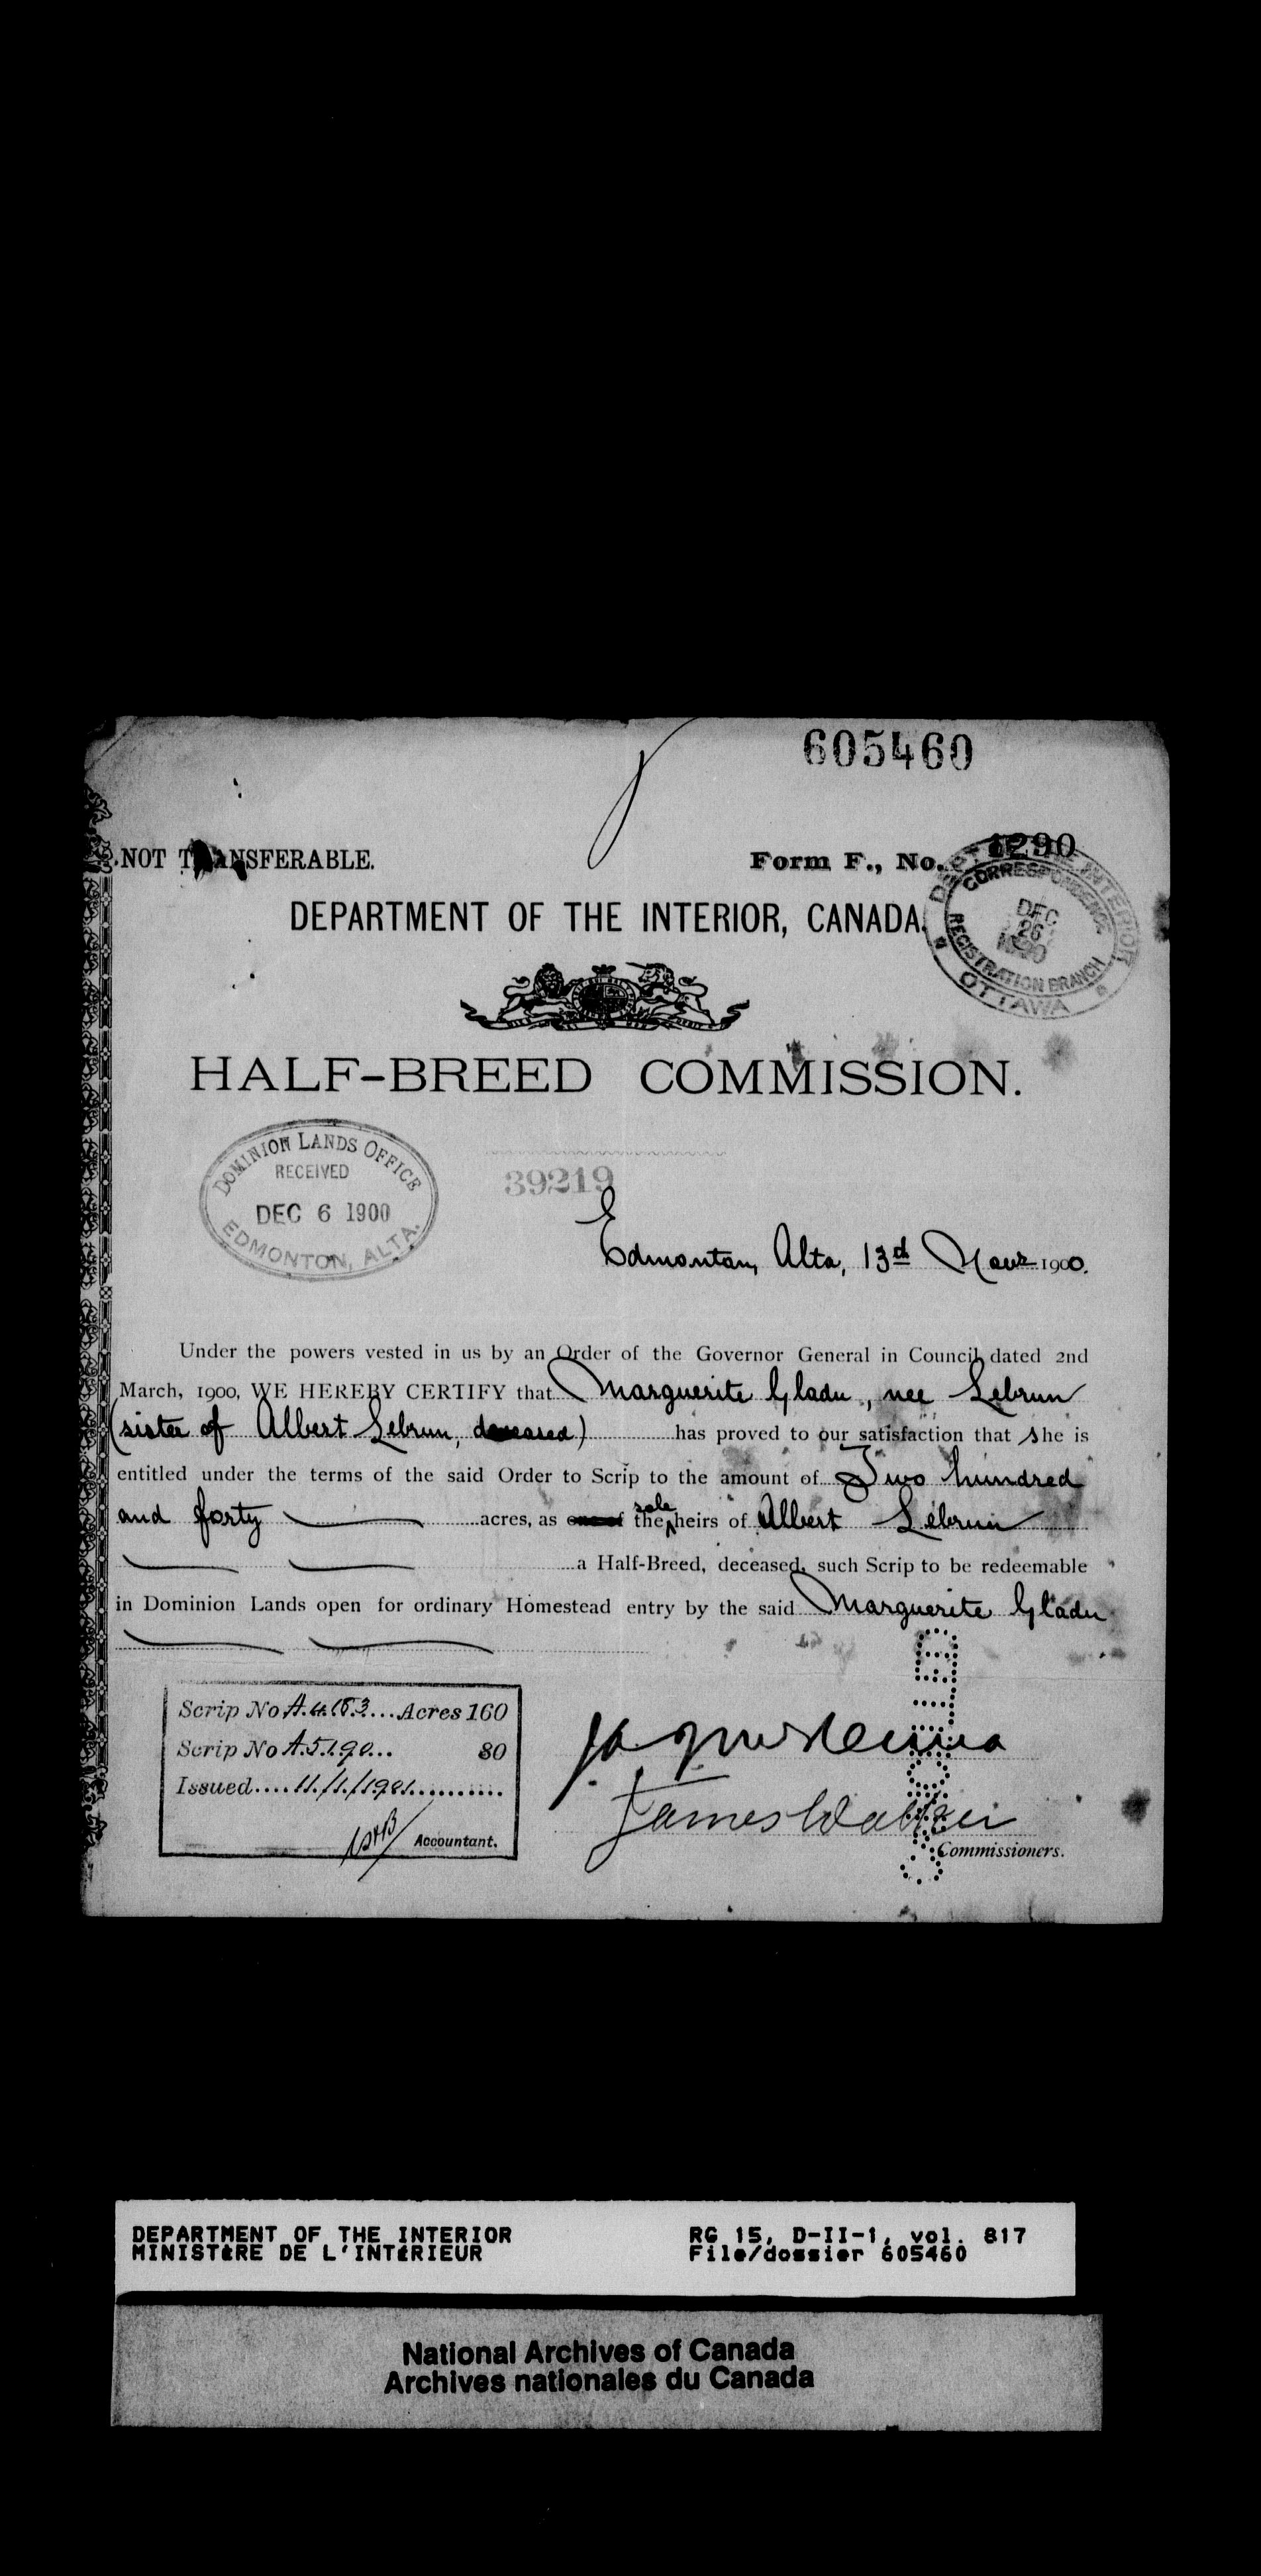 605460
NOT TRANSFERABLE.
Form F., No. 1290
DEPARTMENT OF THE INTERIOR, CANADA.
DEPT OF THE INTERIOR
CORRESPONDENCE
DEC
26
1900
REGISTRATION BRANCH
OTTAWA
HALF-BREED COMMISSION.
DOMINION LANDS OFFICE
RECEIVED
DEC 6 1900
EDMONTON, ALTA.
39219
Edmonton, Alta, 13d Novr 1900.
Under the powers vested in us by an Order of the Governor General in Council dated 2nd
March, 1900, WE HEREBY CERTIFY that Marguerite Gladu, nee Lebrun
(sister of Albert Lebrun, deceased) has proved to our satisfaction that she is
entitled under the terms of the said Order to Scrip to the amount of Two hundred
and forty acres, as one of the sole heirs of Albert Lebrun
a Half-Breed, deceased, such Scrip to be redeemable
in Dominion Lands open for ordinary Homestead entry by the said Marguerite Gladu
Scrip No A.4183... Acres 160
Scrip No A.5190... 80
Issued.... 11/1/1901..........
Accountant.
James Walker
Commissioners.
DEPARTMENT OF THE INTERIOR
MINISTÈRE DE L'INTÉRIEUR
RG 15, D-II-1, vol. 817
File/dossier 605460
National Archives of Canada
Archives nationales du Canada